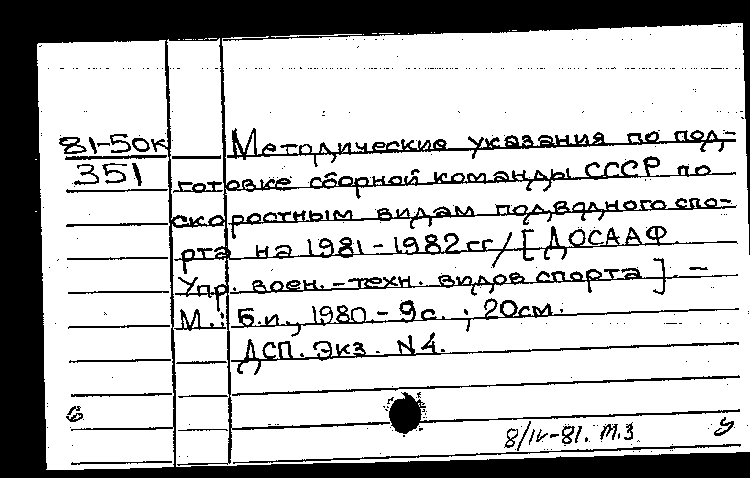 81-50к
351
Методические указания по под-
готовке сборной команды СССР по
скоростным видам подводного спо-
рта на 1981-1982 гг / [ДОСААФ.
Упр. воен.-техн. видов спорта]. -
М.: Б.и., 1980. - 9с. ; 20см.
ДСП. Экз. N4.
6
8/IV-81. М.З.